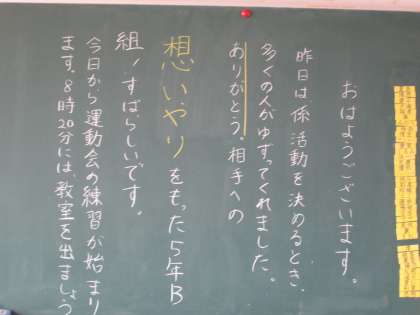 おはようございます。
昨日は、係活動を決めるとき、
多くの人がゆずってくれました。
ありがとう。相手への
想いやりをもった5年B
組！すばらしいです。
今日から運動会の練習が始まり
ます。8時20分には、教室を出ましょう